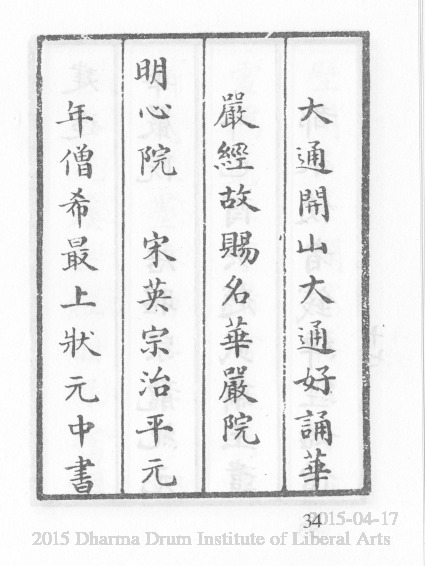 大通開山大通好誦華
嚴經故賜名華嚴院
明心院　宋英宗治平元
年僧希最上狀元中書
34
2015-04-17
2015 Dharma Drum Institute of Liberal Arts